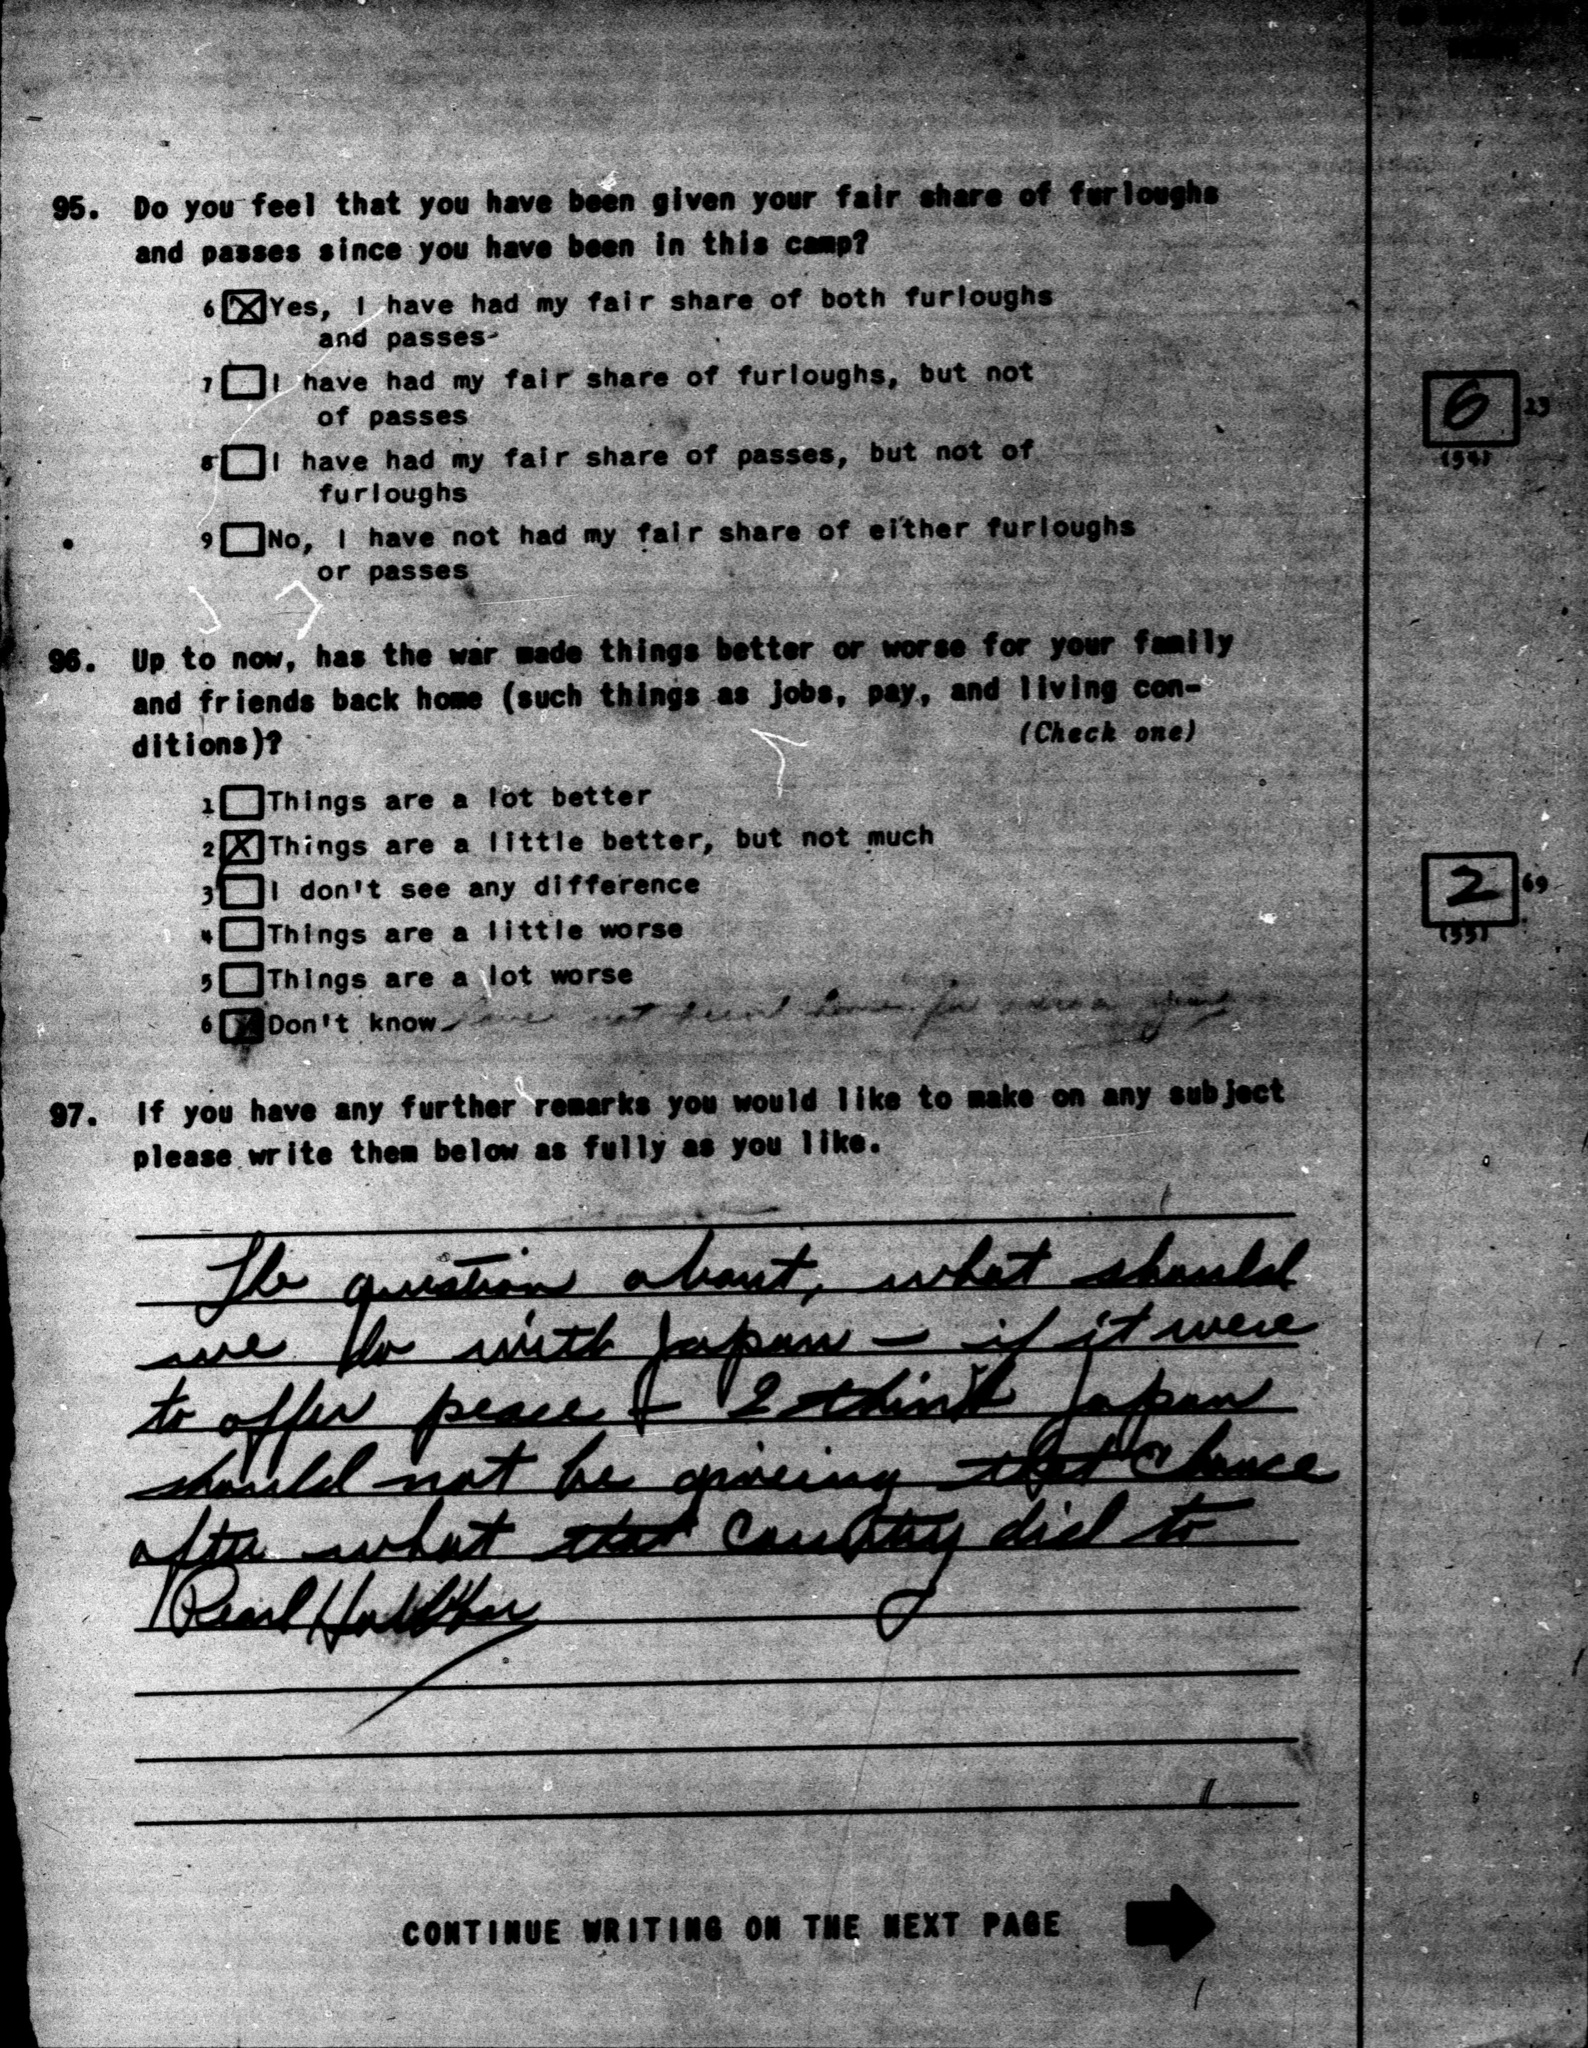 95. Do you feel that you have been given your fair share of furloughs
and passes since you have been in this camp?
6 ☒ Yes, I have had my fair share of both furloughs
and passes
7 ☐ I have had my fair share of furloughs, but not
of passes
8 ☐ I have had my fair share of passes, but not of
furloughs
9 ☐ No, I have not had my fair share of either furloughs
or passes
6 23
(54)
96. Up to now, has the war made things better or worse for your family
and friends back home (such things as jobs, pay, and living con-
ditions)? (Check one)
1 ☐ Things are a lot better
2 ☒ Things are a little better, but not much
3 ☐ I don't see any difference
4 ☐ Things are a little worse
5 ☐ Things are a lot worse
6 ☒ Don't know have not been home for over a year
2 69
(55)
97. If you have any further remarks you would like to make on any subject
please write them below as fully as you like.
The question about, what should
we do with Japan - if it were
to offer peace - I think Japan
should not be giveing that chance
after what that Country did to
Pearl Harbor
CONTINUE WRITING ON THE NEXT PAGE